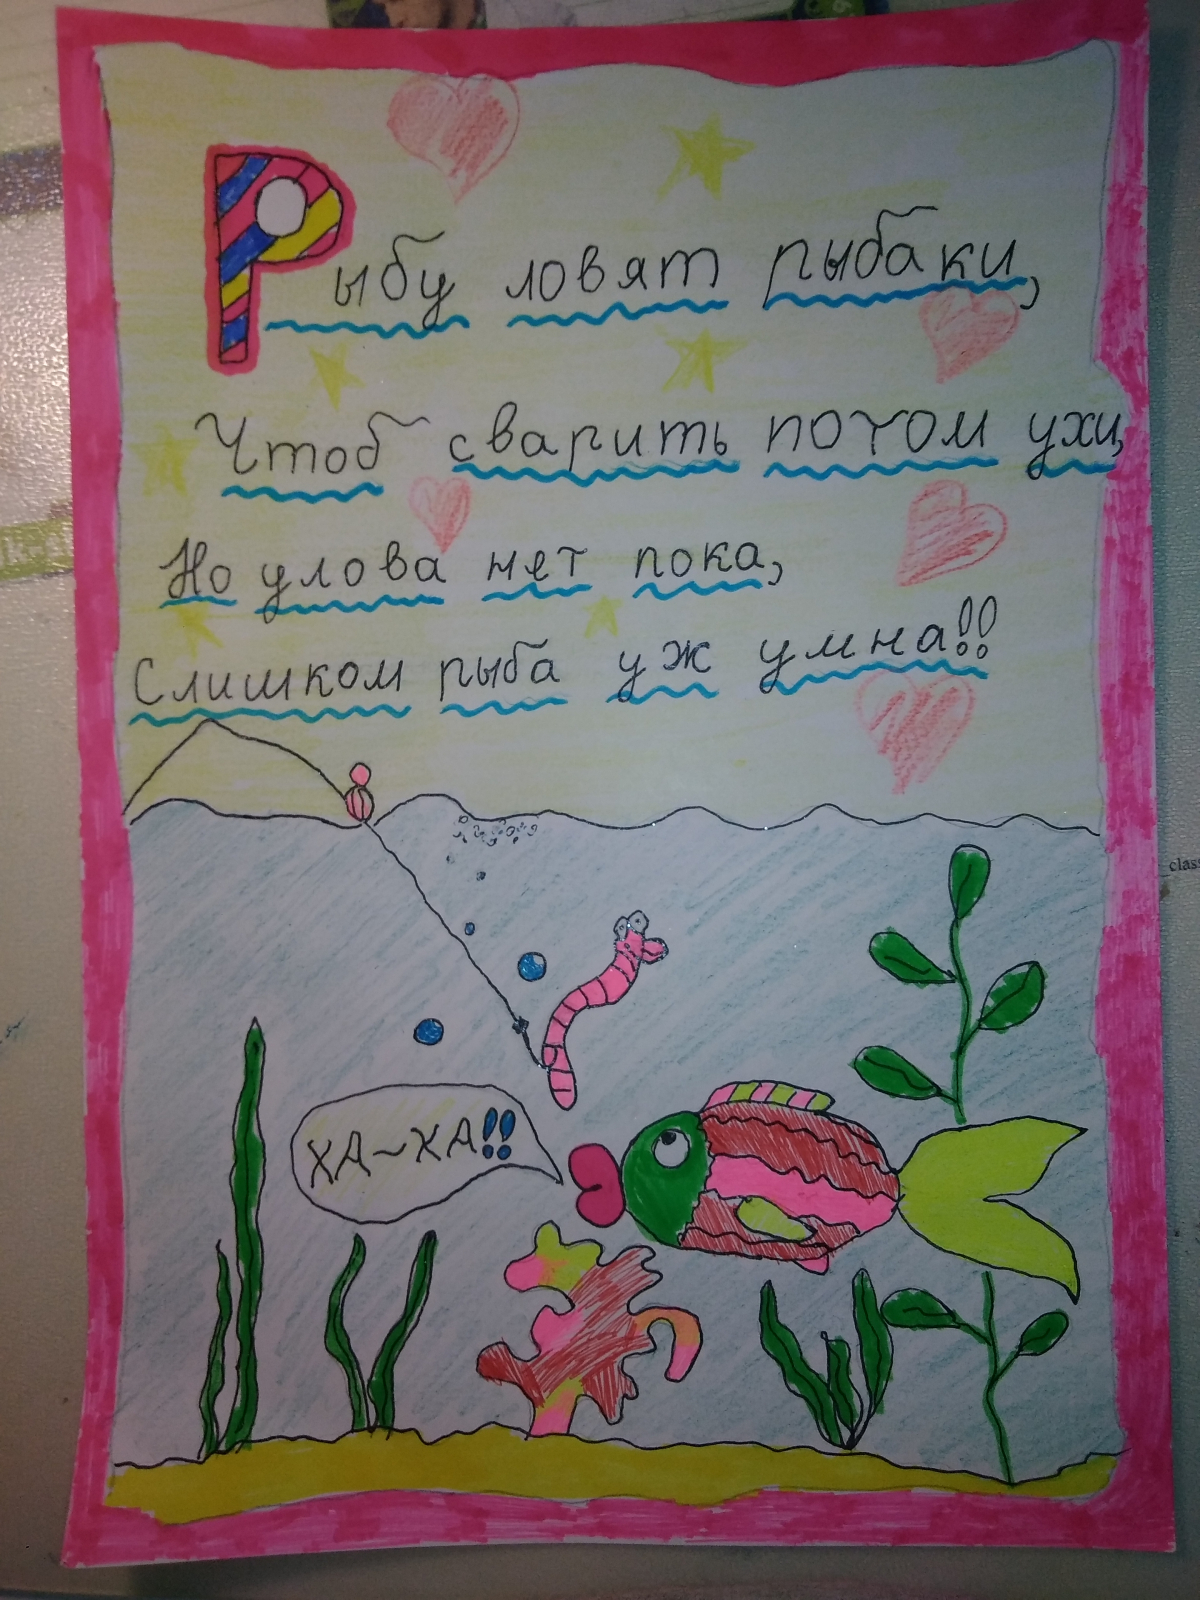 Рыбу ловят рыбаки,
Чтоб сварить потом ухи,
Но улова нет пока,
Слишком рыба уж умна!!
ХА~ХА!!
clas